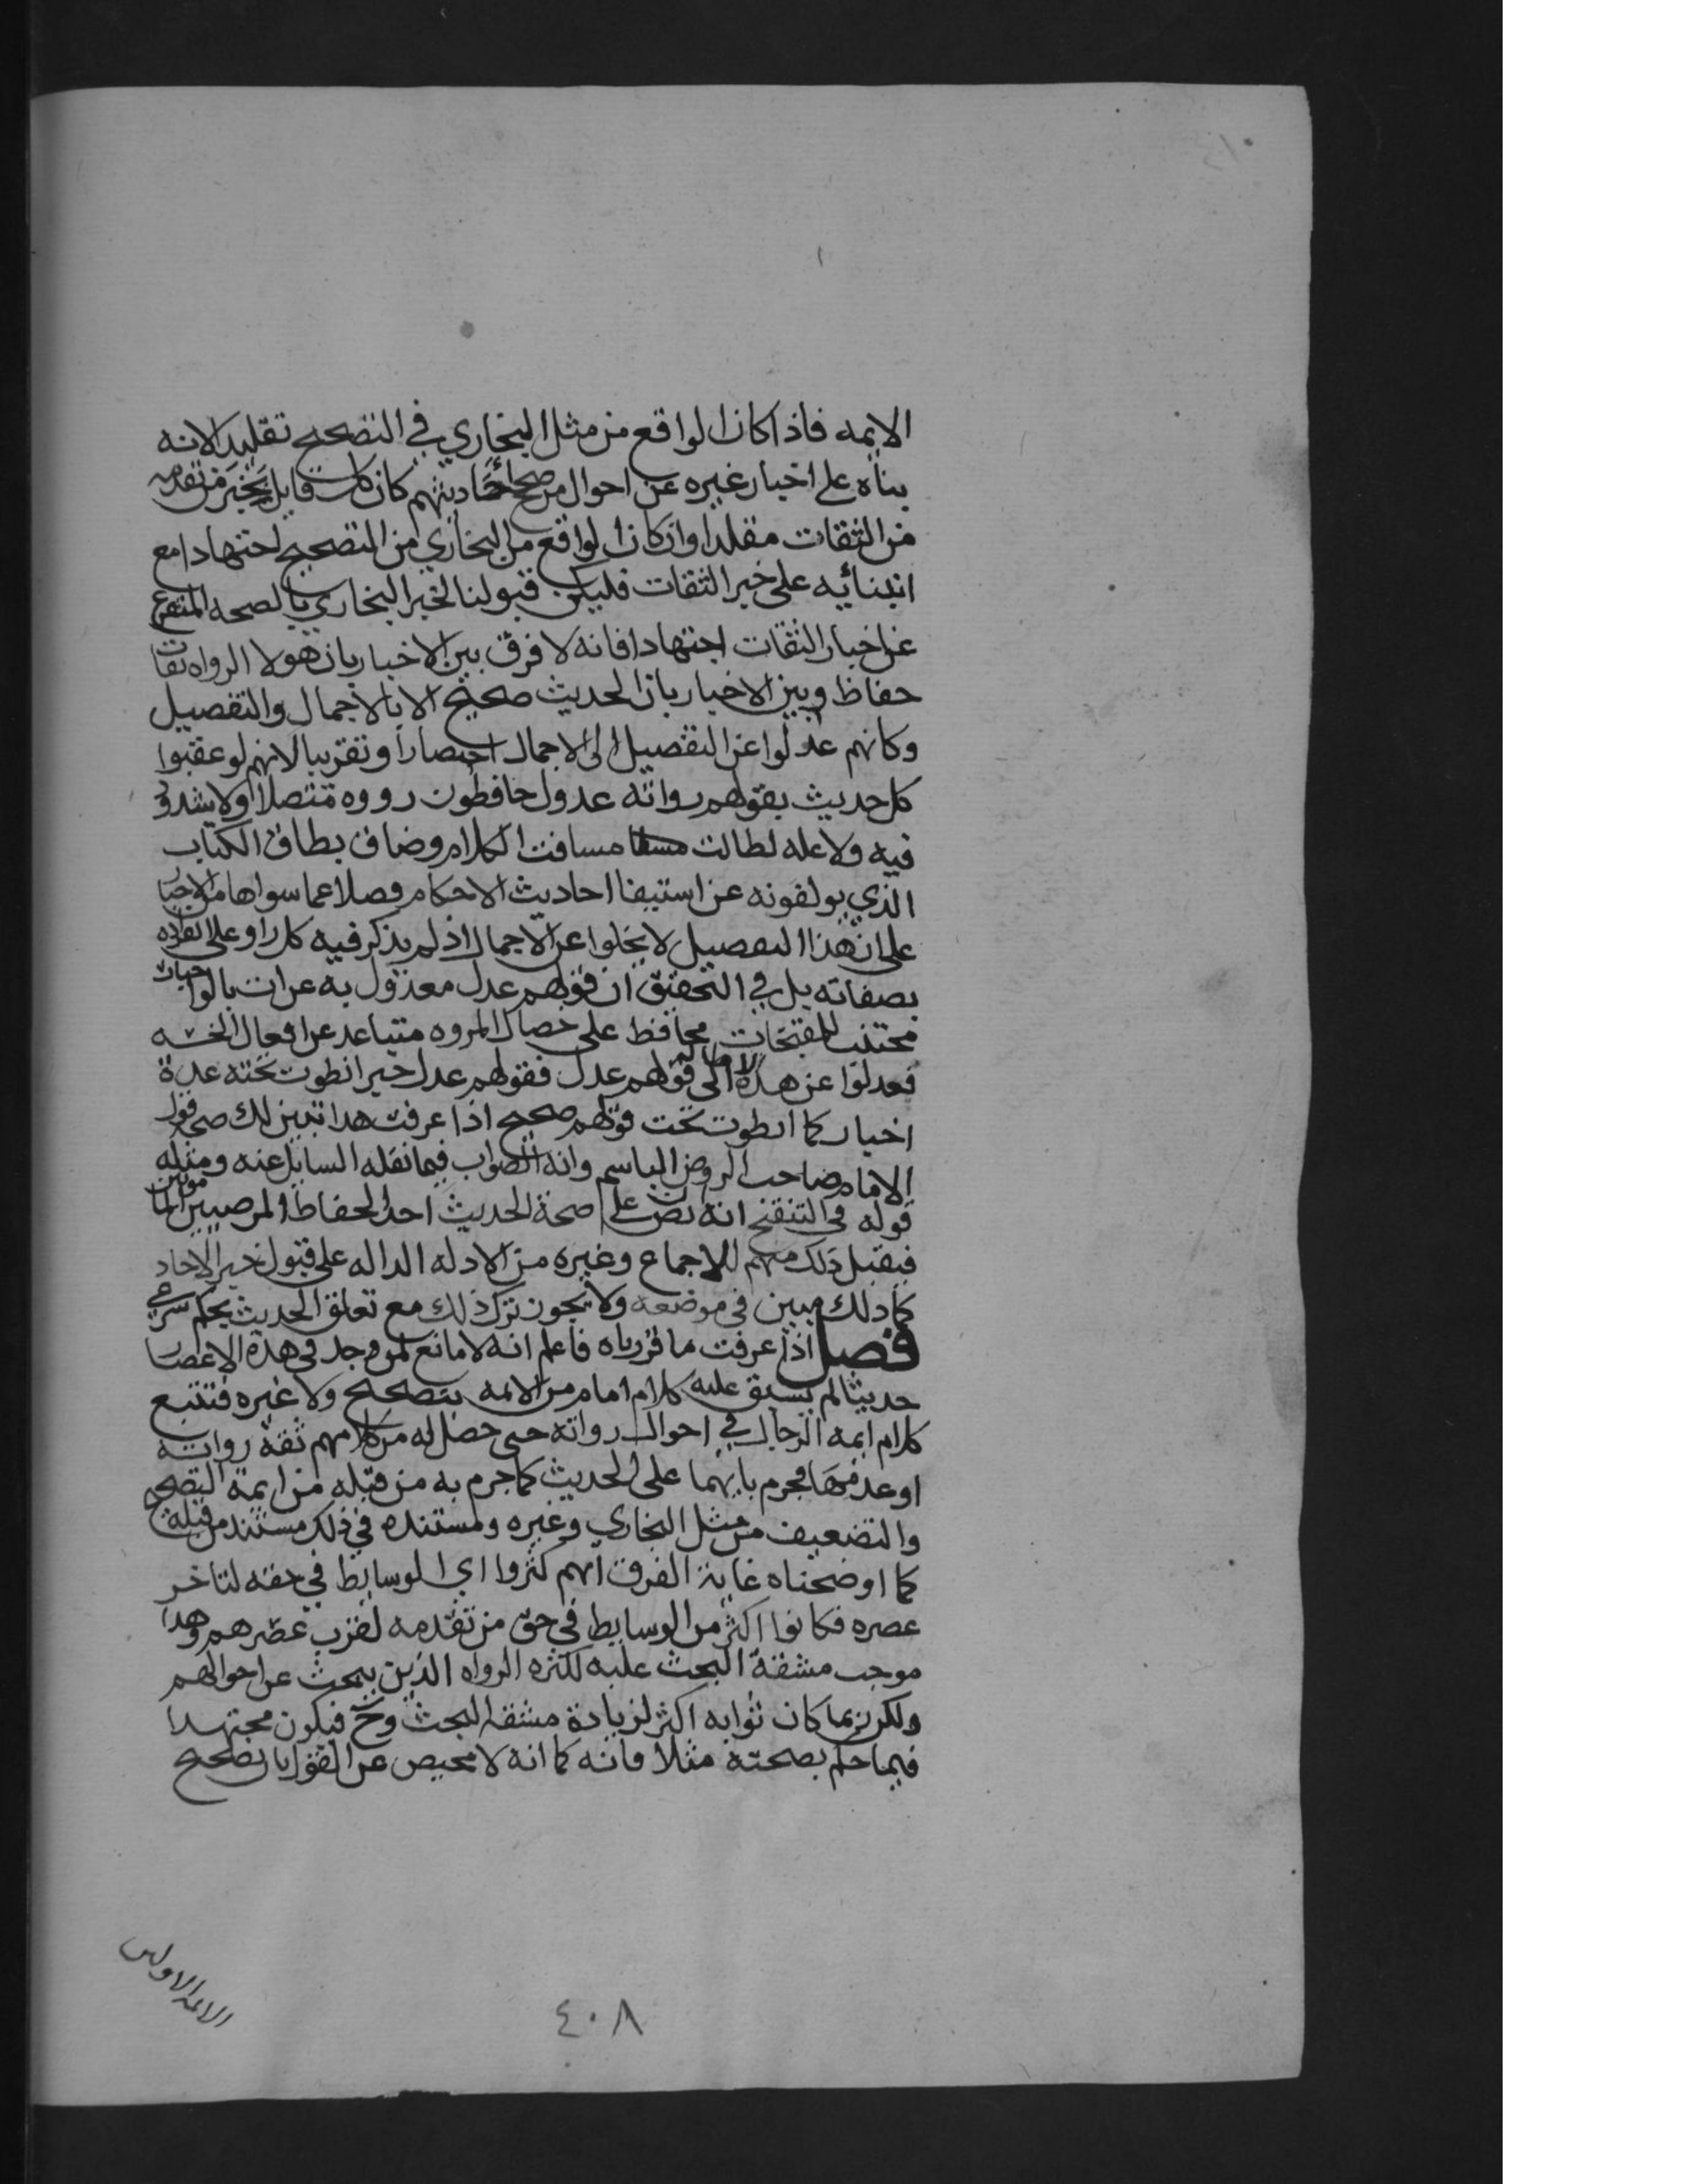 الايمه فاذا كان الواقع من مثل البخاري في التصحيح تقليدا لانه
بناه على اخبار غيره عن احوال من صحح احاديثهم كان كل قابل بخبر من تقدمه
من الثقات مقلدا وان كان الواقع من البخاري من التصحيح اجتهادا مع
ابتنائه على خبر الثقات فليكن قبولنا لخبر البخاري بالصحه المتفرع
عن اخبار الثقات اجتهادا فانه لا فرق بين الاخبار بان هولا الرواه ثقات
حفاظ وبين الاخبار بان الحديث صحيح الا بالاجمال والتفصيل
وكانهم عدلوا عن التفصيل الى الاجمال اختصارا وتقريبا لانهم لو عقبوا
كل حديث بقولهم رواته عدول حافظون رووه متصلا ولا شذوذ
فيه ولا عله لطالت مسافت الكلام وضاق نطاق الكتاب
الذي يولفونه عن استيفا احاديث الاحكام فضلا عما سواها من الاخبار
على ان هذا التفصيل لا يخلوا عن الاجمال اذ لم يذكر فيه كل راو على انفراده
بصفاته بل في التحقيق ان قولهم عدل معدول به عن ات بالواجبات
مجتنب للمقبحات محافظ على خصال المروه متباعد عن افعال الخسه
فعدلوا عن هذه الاطاله الى قولهم عدل فقولهم عدل خبر انطوت تحته عدة
اخبار كما انطوت تحت قولهم صحيح اذا عرفت هذا تبين لك صحة قول
الامام صاحب الروض الباسم وانه الصواب فيما نقله السايل عنه ومثله
قوله في التنقيح انه ان نص على صحة الحديث احد الحفاظ المرضيين المامونين
فيقبل ذلك منهم للاجماع وغيره من الادله الداله على قبول خبر الاحاد
كما ذلك مبين في موضعه ولا يجوز ترك ذلك مع تعلق الحديث بحكم شرعي
فصل اذا عرفت ما قررناه فاعلم انه لا مانع لمن وجد في هذه الاعصار
حديثا لم يسبق عليه كلام امام من الايمه بتصحيح ولا غيره فتتبع
كلام ايمه الرجال في احوال رواته حتى حصل له من كلامهم ثقة رواته
او عدمها فجزم بايهما على الحديث كما جزم به من قبله من ايمة التصحيح
والتضعيف من مثل البخاري وغيره ومستنده في ذلك مستند من قبله
كما اوضحناه غاية الفرق انهم كثروا اي الوسايط في حقه لتاخر
عصره فكانوا اكثر من الوسايط في حق من تقدمه لقرب عصرهم وهذا
موجب مشقة البحث عليه لكثره الرواه الذين يبحث عن احوالهم
ولكن ربما كان ثوابه اكثر لزيادة مشقه البحث وح فيكون مجتهدا
فيما حكم بصحته مثلا فانه كما انه لا محيص عن القول بان تصحيح
الايمه الاولين
٤٠٨